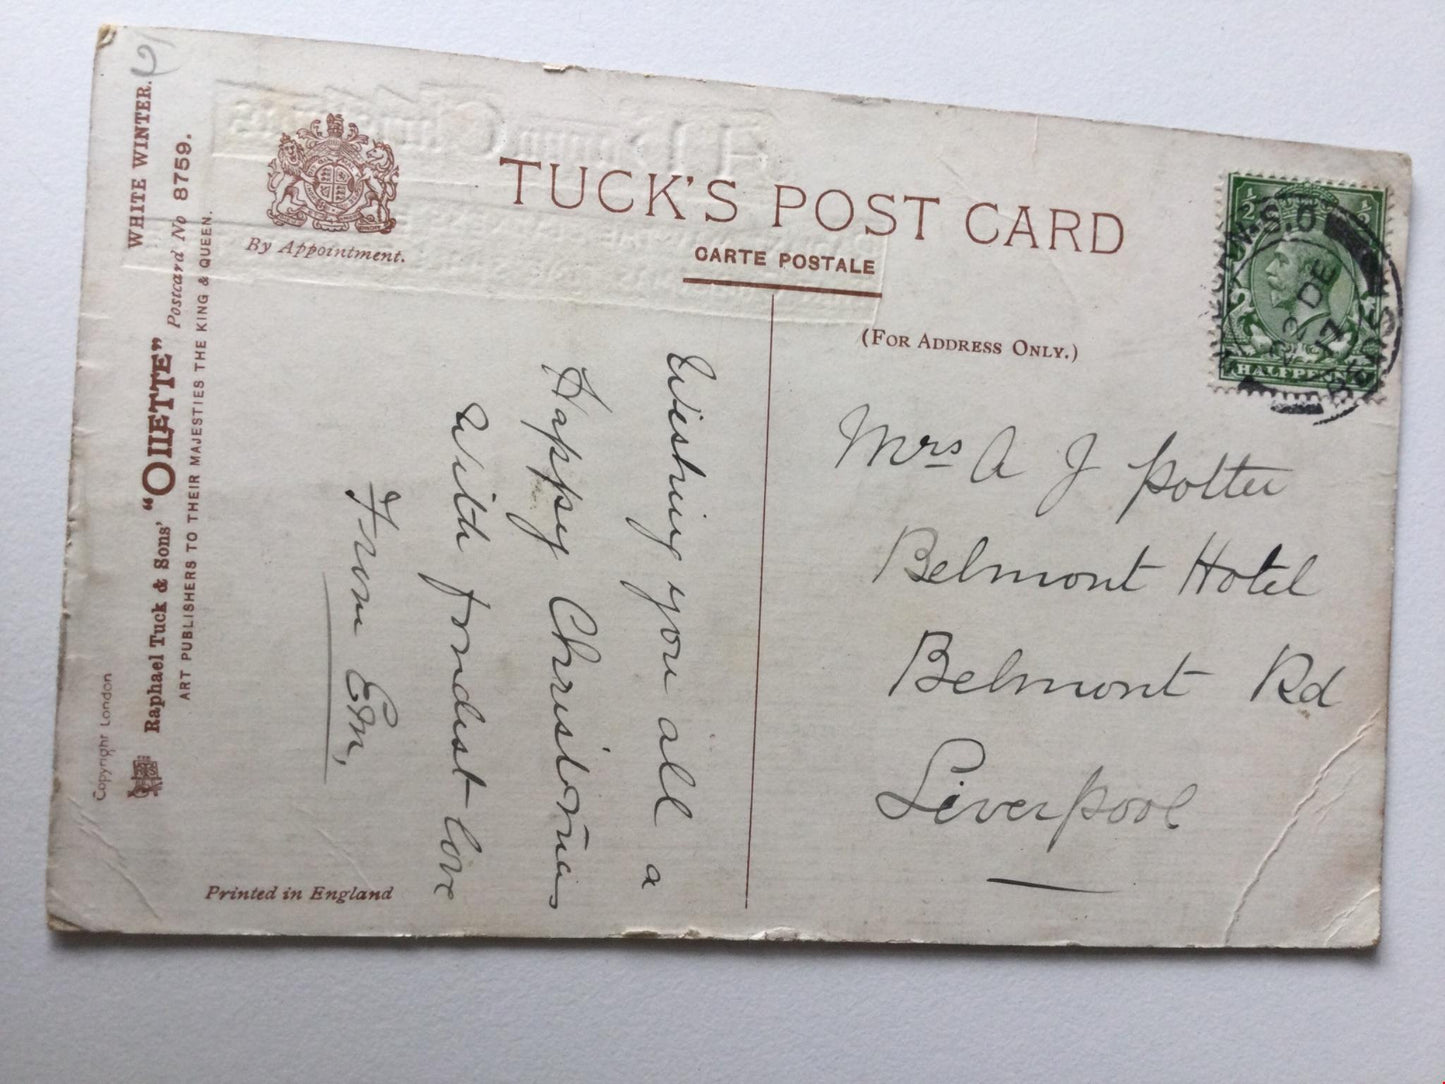 WHITE WINTER.
Raphael Tuck & Sons' "OILETTE" Postcard No 8759.
ART PUBLISHERS TO THEIR MAJESTIES THE KING & QUEEN.
Copyright London
By Appointment.
TUCK'S POST CARD
CARTE POSTALE
(FOR ADDRESS ONLY.)
½ ½
HALFPENNY
S.O
DE
Wishing you all a
Happy Christmas
With fondest love
From Em,
Mrs A J Potter
Belmont Hotel
Belmont Rd
Liverpool
Printed in England